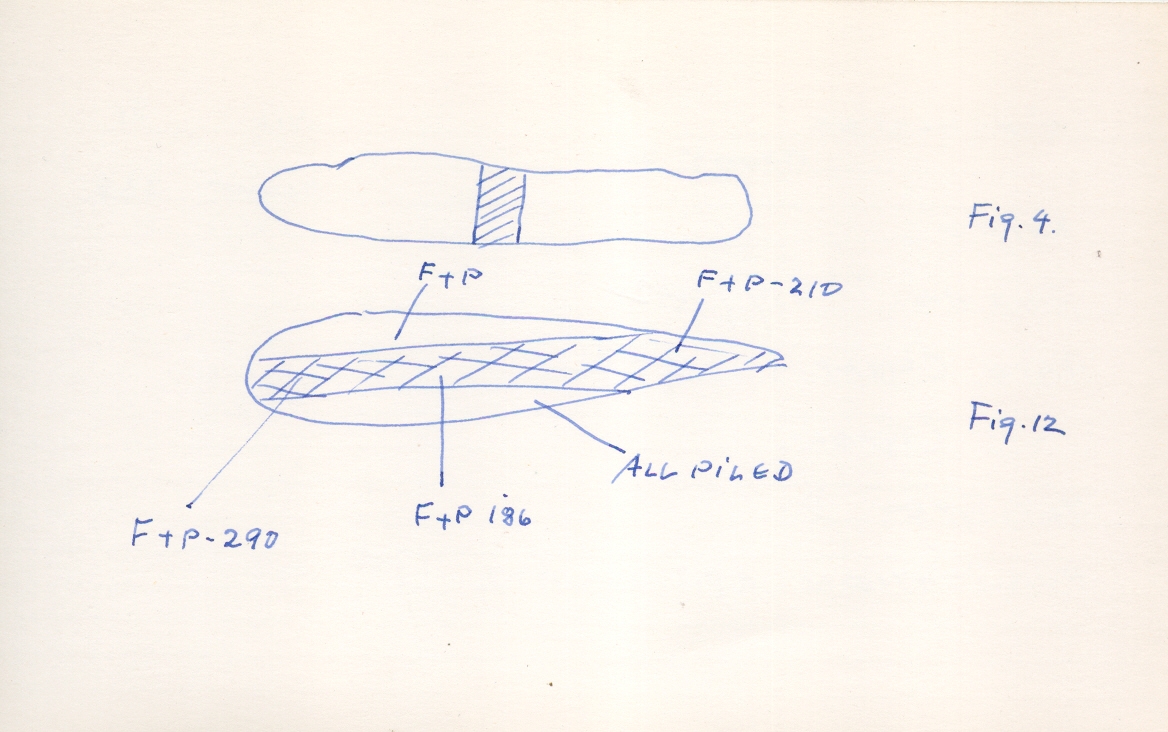 Fig. 4.
F+P
F+P-210
Fig. 12
ALL PILED
F+P 186
F+P-290